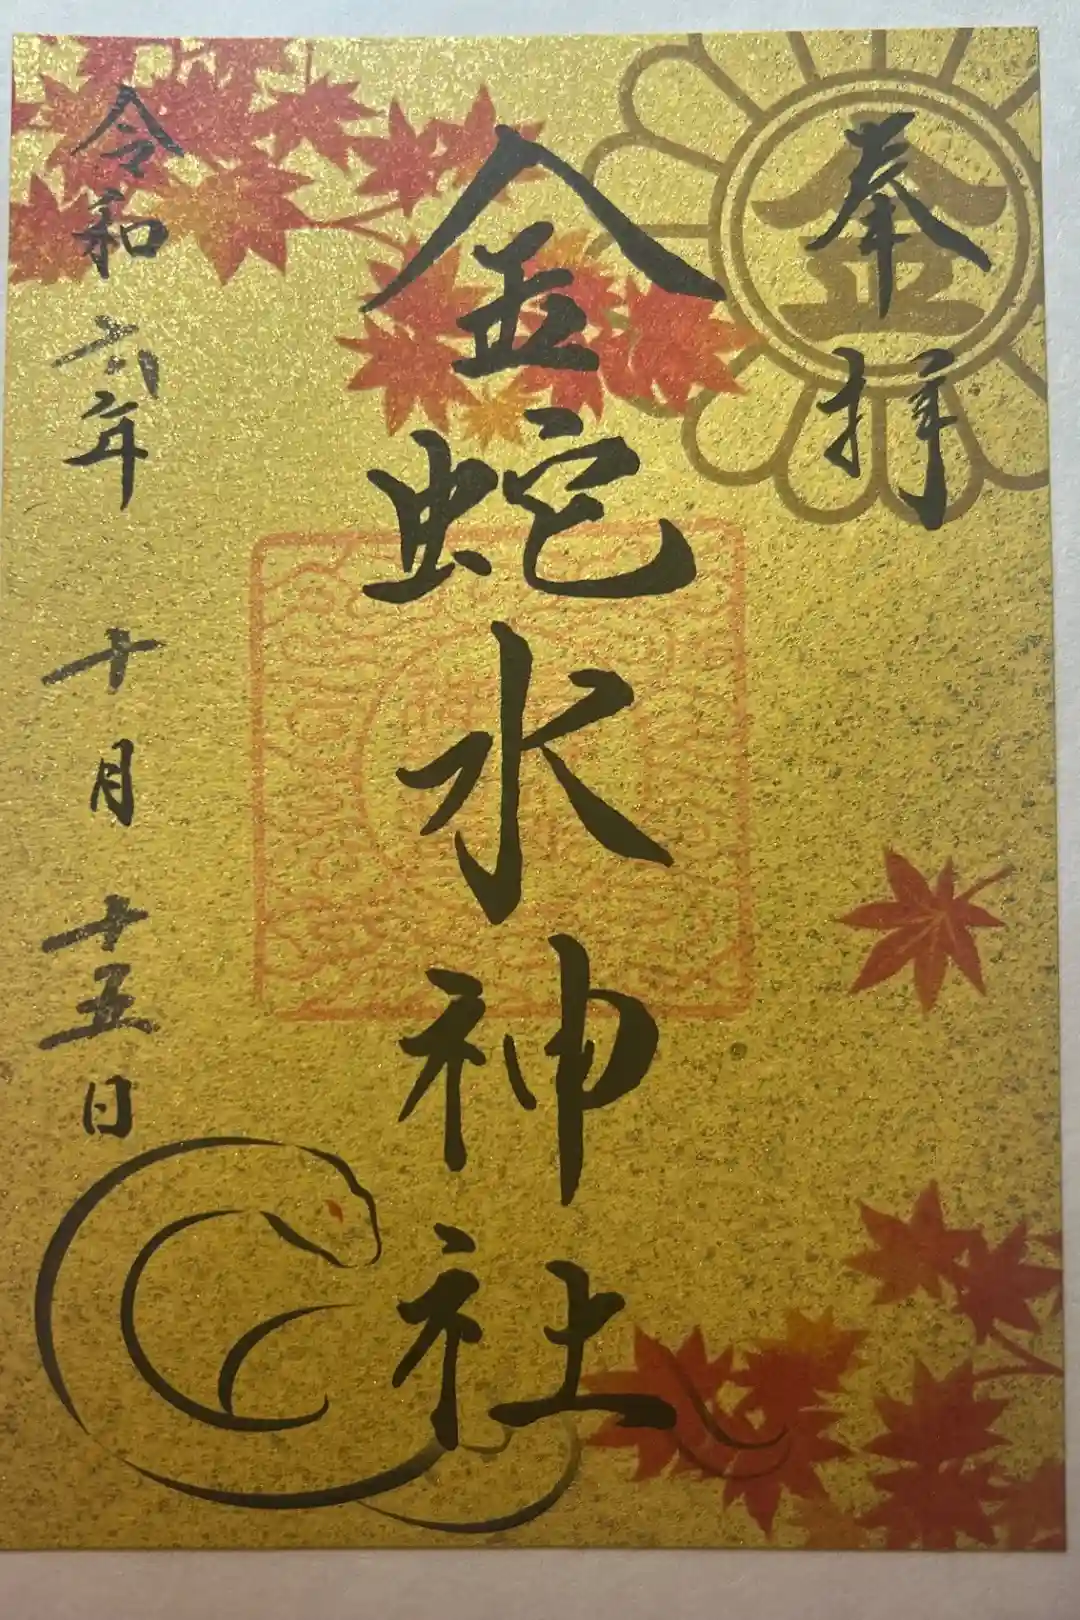 奉拝
金
金蛇水神社
令和六年十月十五日